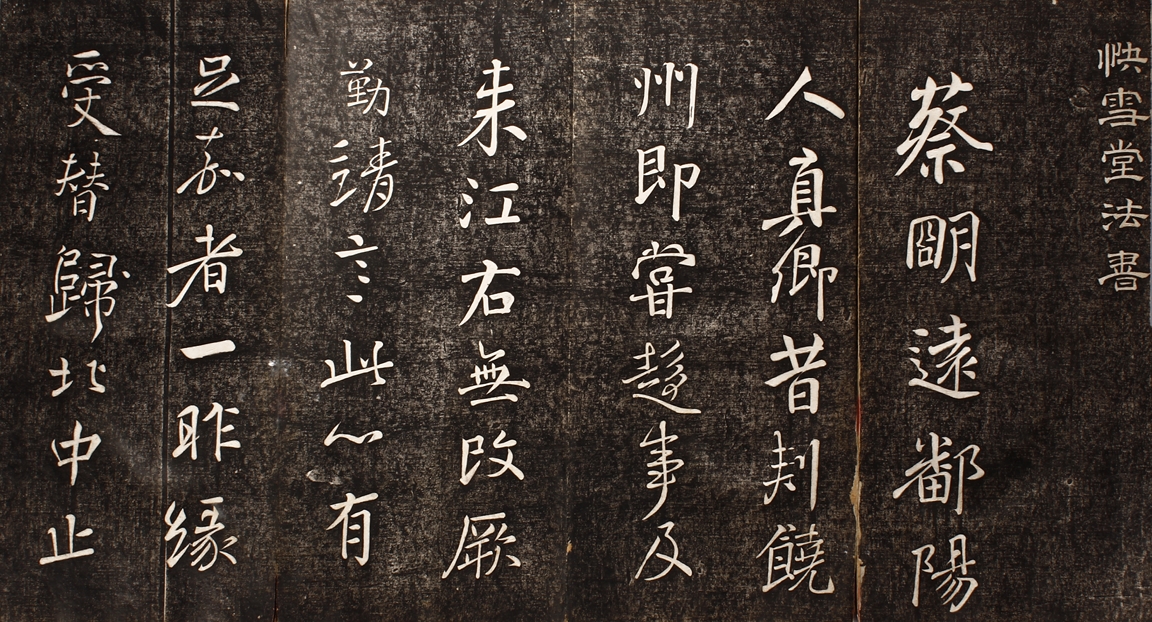 快雪堂法書
蔡明遠鄱陽
人真卿昔刺饒
州即嘗趍事及
来江右無改厥
勤靖言此心有
足嘉者一昨緣
受替歸北中止